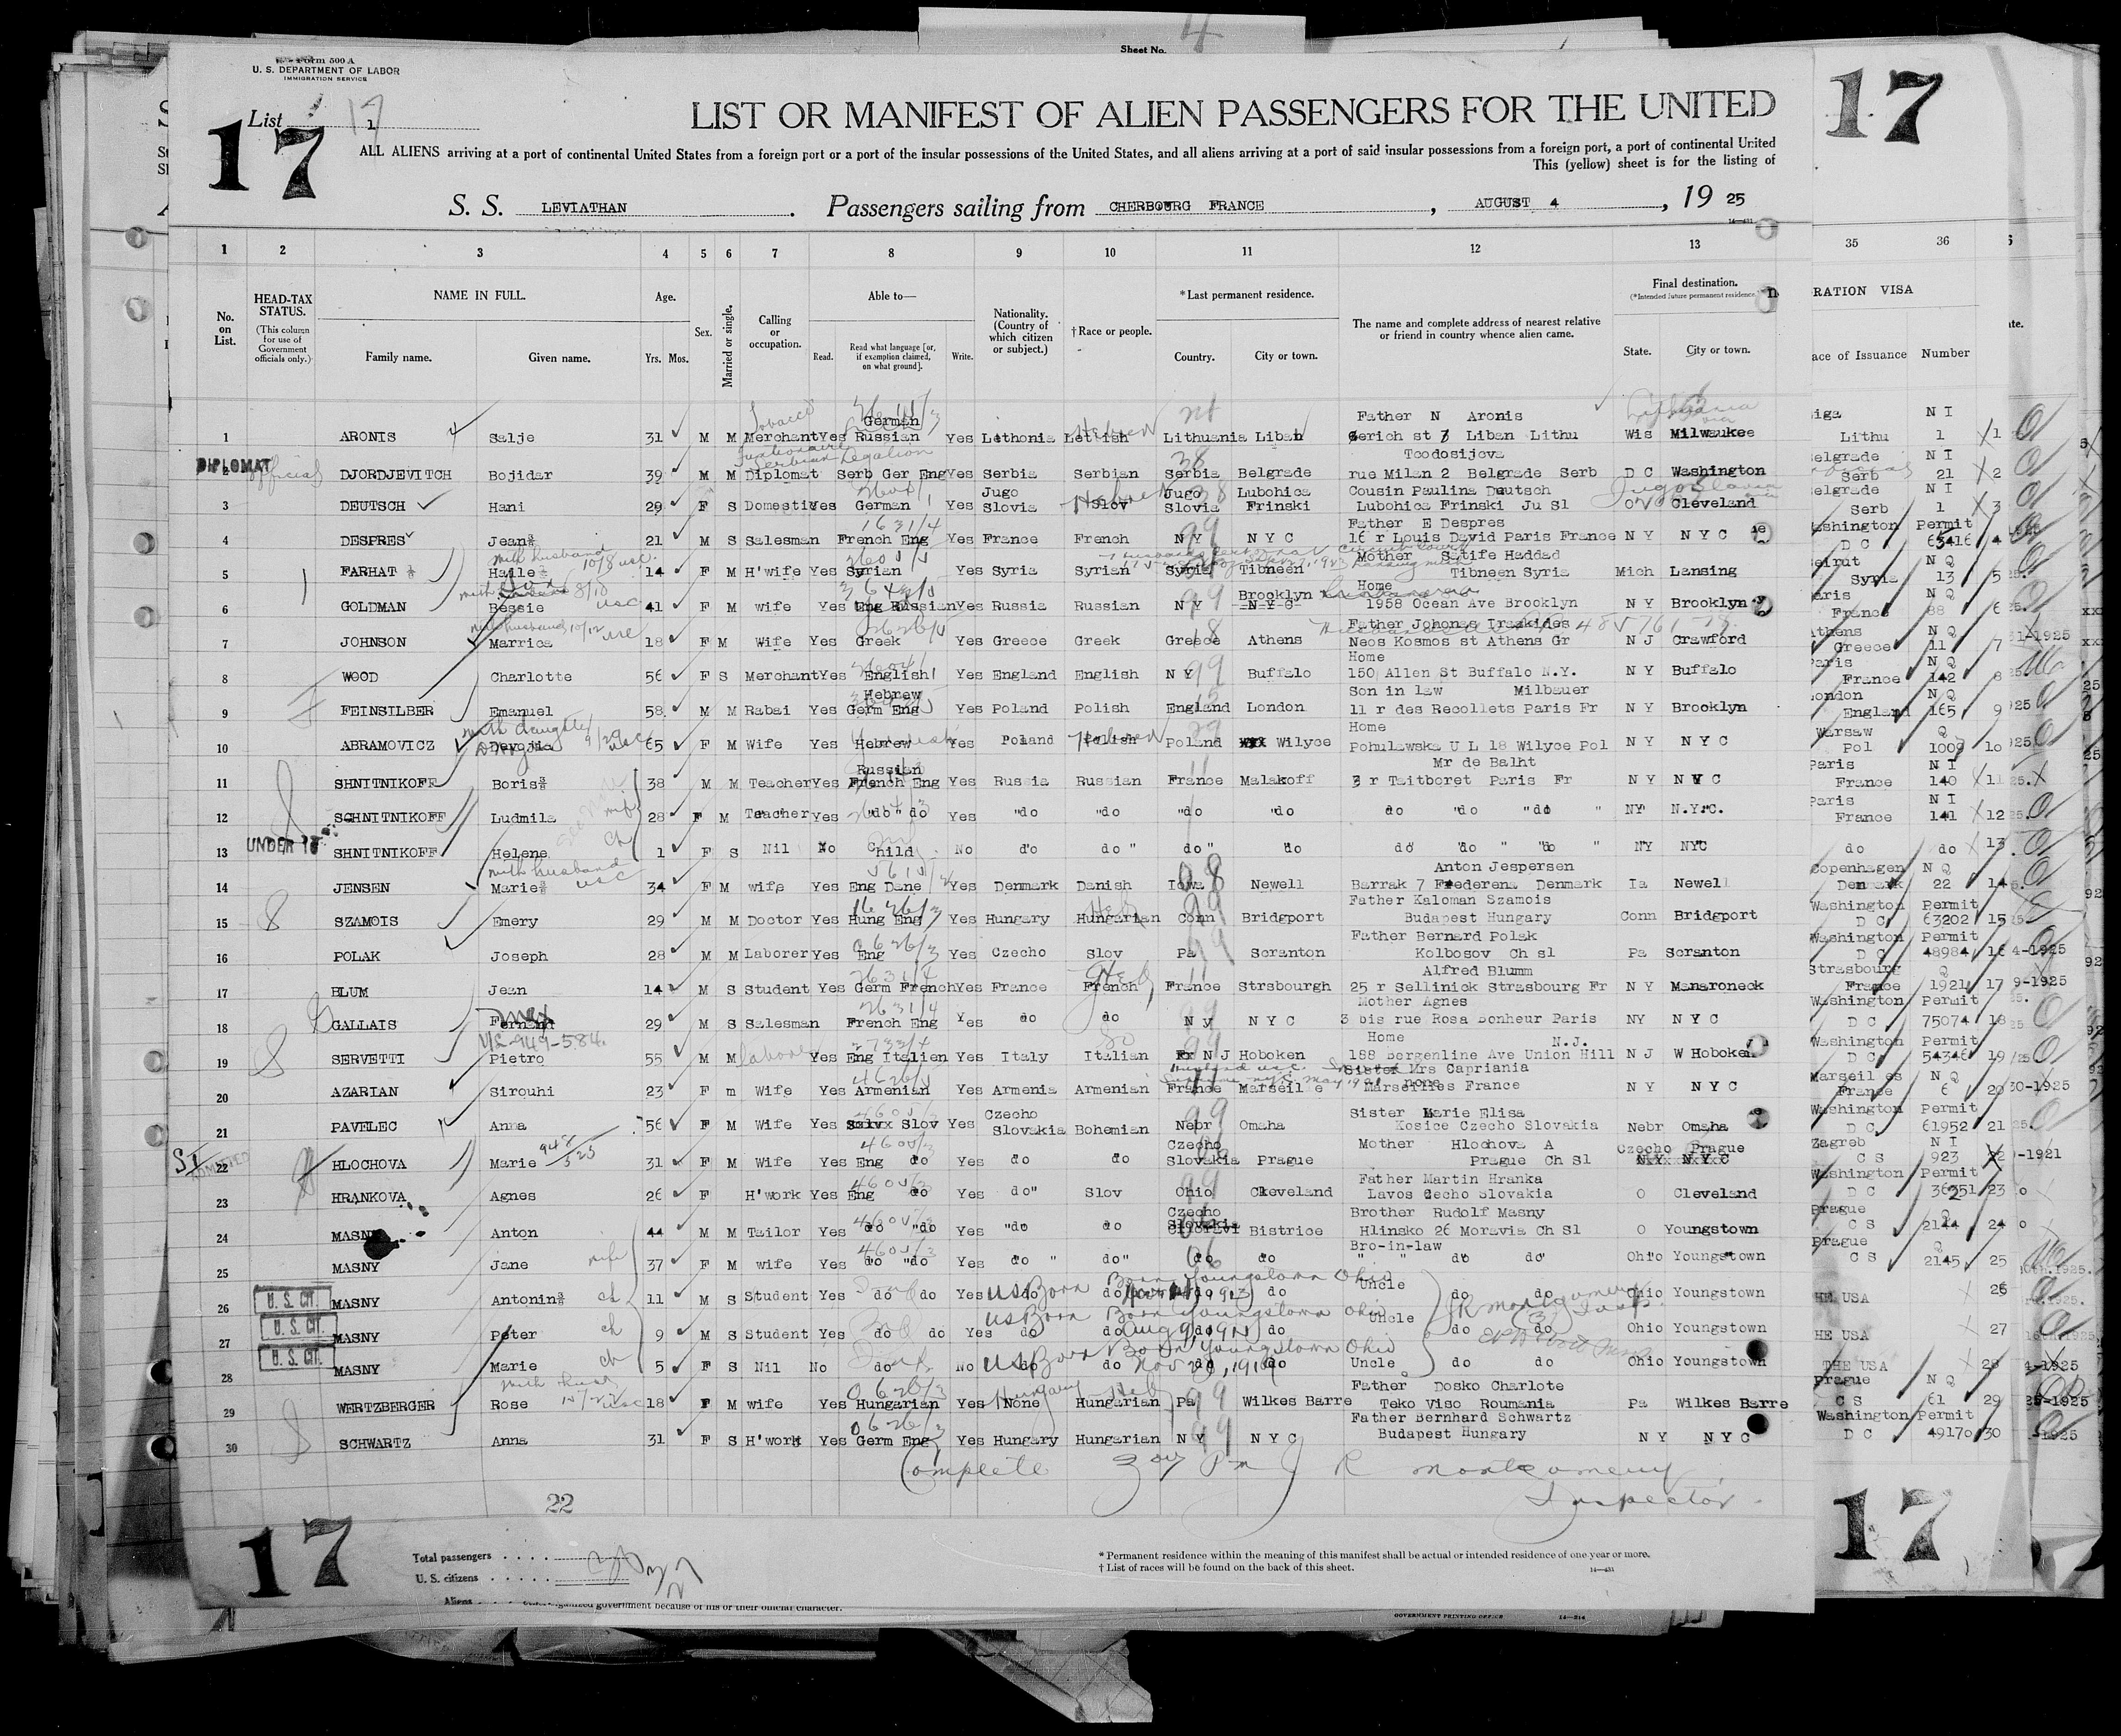 Sheet No. 4
Form 500 A
U. S. DEPARTMENT OF LABOR
IMMIGRATION SERVICE
List 17
17
17
LIST OR MANIFEST OF ALIEN PASSENGERS FOR THE UNITED
ALL ALIENS arriving at a port of continental United States from a foreign port or a port of the insular possessions of the United States, and all aliens arriving at a port of said insular possessions from a foreign port, a port of continental United
This (yellow) sheet is for the listing of
S. S. LEVIATHAN. Passengers sailing from CHERBOURG FRANCE, AUGUST 4, 19 25
1 2 3 4 5 6 7 8 9 10 11 12 13 35 36
No. on List.
HEAD-TAX STATUS.
(This column for use of Government officials only.)
NAME IN FULL.
Family name. Given name.
Age.
Yrs. Mos.
Sex.
Married or single.
Calling or occupation.
Able to—
Read. Read what language [or, if exemption claimed, on what ground]. Write.
Nationality. (Country of which citizen or subject.)
†Race or people.
*Last permanent residence.
Country. City or town.
The name and complete address of nearest relative or friend in country whence alien came.
Final destination.
(*Intended future permanent residence.
State. City or town.
RATION VISA
ace of Issuance Number
German Father N Aronis iga N I
1 ARONIS Salje 31 M M Merchant Yes Russian Yes Lethonia Lettish Lithuania Liban Gerich st 3 Liban Lithu Wis Milwaukee Lithu 1 1
Serbian Legation Teodosijeva elgrade N I
DIPLOMAT official DJORDJEVITCH Bojidar 39 M M Diplomat Serb Ger Eng Yes Serbia Serbian Serbia Belgrade rue Milan 2 Belgrade Serb D C Washington Serb 21 2
Jugo Jugo Lubohica Cousin Paulina Deutsch elgrade N I
3 DEUTSCH Hani 29 F S Domestic Yes German Yes Slovia Slov Slovia Frinski Lubohica Frinski Ju Sl O Cleveland Serb 1 3
Father E Despres ashington Permit
4 DESPRES Jean 21 M S Salesman French Eng Yes France French N Y N Y C 16 r Louis David Paris France N Y N Y C D C 63416 4
with husband 10/8 usc. Mother Satife Haddad eirut N Q
5 FARHAT Haile 14 F M H'wife Yes Syrian Yes Syria Syrian Syria Tibneen Tibneen Syria Mich Lansing Syria 13 5
Brooklyn Home aris N Q
6 GOLDMAN Bessie 41 F M wife Yes Eng Russian Yes Russia Russian N Y N Y C 1958 Ocean Ave Brooklyn N Y Brooklyn France 88 6
with husband 10/12 usc Father Johones Iraskides thens N Q
7 JOHNSON Marrica 18 F M Wife Yes Greek Yes Greece Greek Greece Athens Neos Kosmos st Athens Gr N J Crawford Greece 11 7
Home aris N Q
8 WOOD Charlotte 56 F S Merchant Yes English Yes England English N Y Buffalo 150 Allen St Buffalo N.Y. N Y Buffalo France 142 8
Hebrew Son in law Milbauer ondon N Q
9 FEINSILBER Emanuel 58 M M Rabai Yes Germ Eng Yes Poland Polish England London 11 r des Recollets Paris Fr N Y Brooklyn England 165 9
with daughter 9/29 usc Home Warsaw Q
10 ABRAMOVICZ 65 F M Wife Yes Hebrew Yes Poland Polish Poland Wilyce Pohulawska U L 18 Wilyce Pol N Y N Y C Pol 1009 10
Russian Mr de Balht Paris N I
11 SHNITNIKOFF Boris 38 M M Teacher Yes French Eng Yes Russia Russian France Malakoff 3 r Taitboret Paris Fr N Y N Y C France 140 11
Paris N I
12 SCHNITNIKOFF Ludmila wife 28 F M Teacher Yes "do" do Yes "do "do "do "do do "do "do " NY N.Y.C. France 141 12
UNDER 16
13 SHNITNIKOFF Helene ch 1 F S Nil No Child No do do " do" "do do "do " "do " NY NYC do do 13
with husband usc Anton Jespersen Copenhagen N Q
14 JENSEN Marie 34 F M wife Yes Eng Dane Yes Denmark Danish Iowa Newell Barrak 7 Frederena Denmark Ia Newell Denmark 22 14
Father Kaloman Szamois Washington Permit
15 SZAMOIS Emery 29 M M Doctor Yes Hung Eng Yes Hungary Hungarian Conn Bridgport Budapest Hungary Conn Bridgport D C 63202 15
Father Bernard Polak Washington Permit
16 POLAK Joseph 28 M M Laborer Yes Eng Yes Czecho Slov Pa Scranton Kolbosov Ch sl Pa Scranton D C 48984 16
Alfred Blumm Strasbourg Q
17 BLUM Jean 14 M S Student Yes Germ French Yes France French France Strsbourgh 25 r Sellinick Strasbourg Fr N Y Mamaroneck France 1921 17
Mother Agnes Washington Permit
18 GALLAIS Fernand 29 M S Salesman French Eng Yes do do N Y N Y C 3 bis rue Rosa Bonheur Paris NY N Y C D C 75074 18
V/L-949-584. Home N.J. Washington Permit
19 SERVETTI Pietro 55 M M laborer Yes Eng Italien Yes Italy Italian N J Hoboken 188 Bergenline Ave Union Hill N J W Hoboken D C 54346 19
Sister Mrs Capriania Marseilles N Q
20 AZARIAN Sirouhi 23 F m Wife Yes Armenian Yes Armenia Armenian France Marseille Marseilles France N Y N Y C France 6 20
Czecho Sister Marie Elisa Washington Permit
21 PAVELEC Anna 56 F M Wife Yes Slov Yes Slovakia Bohemian Nebr Omaha Kosice Czecho Slovakia Nebr Omaha D C 61952 21
SI 948 525 Czecho Mother Hlochova A Czecho Prague Zagreb N I
22 HLOCHOVA Marie 31 F M Wife Yes Eng do Yes do do Slovakia Prague Prague Ch Sl N Y N Y C C S 923 22
Father Martin Hranka Washington Permit
23 HRANKOVA Agnes 26 F H'work Yes Eng do Yes do" Slov Ohio Cleveland Lavos Cecho Slovakia O Cleveland D C 36251 23
Czecho Brother Rudolf Masny Prague Q
24 MASNY Anton 44 M M Tailor Yes do "do Yes "do do Slovakia Bistrice Hlinsko 26 Moravia Ch Sl O Youngstown C S 2144 24
Bro-in-law Prague Q
25 MASNY Jane wife 37 F M wife Yes do "do Yes do " do" do do " " do do" Ohio Youngstown C S 2145 25
U. S. CIT. US Born Born Youngstown Ohio Uncle
26 MASNY Antonin ch 11 M S Student Yes do do Yes do do do do do do Ohio Youngstown HE USA 26
U. S. CIT. US Born Born Youngstown Ohio Uncle R Montgomery Insp.
27 MASNY Peter ch 9 M S Student Yes do do Yes do do do do do do Ohio Youngstown HE USA 27
U. S. CIT. US Born Born Youngstown Ohio
28 MASNY Marie ch 5 F S Nil No do No do do do do Uncle do do Ohio Youngstown THE USA 28
with husb usc Hungary Father Dosko Charlote Prague N Q
29 WERTZBERGER Rose 18 F M wife Yes Hungarian Yes None Hungarian Pa Wilkes Barre Teko Viso Roumania Pa Wilkes Barre C S 61 29
Father Bernhard Schwartz Washington Permit
30 SCHWARTZ Anna 31 F S H'work Yes Germ Eng Yes Hungary Hungarian N Y N Y C Budapest Hungary N Y N Y C D C 49170 30
Complete R Montgomery
Inspector.
22
17
17
Total passengers
U. S. citizens
Aliens
*Permanent residence within the meaning of this manifest shall be actual or intended residence of one year or more.
†List of races will be found on the back of this sheet.
14—431
organized government because of his or their official character.
GOVERNMENT PRINTING OFFICE